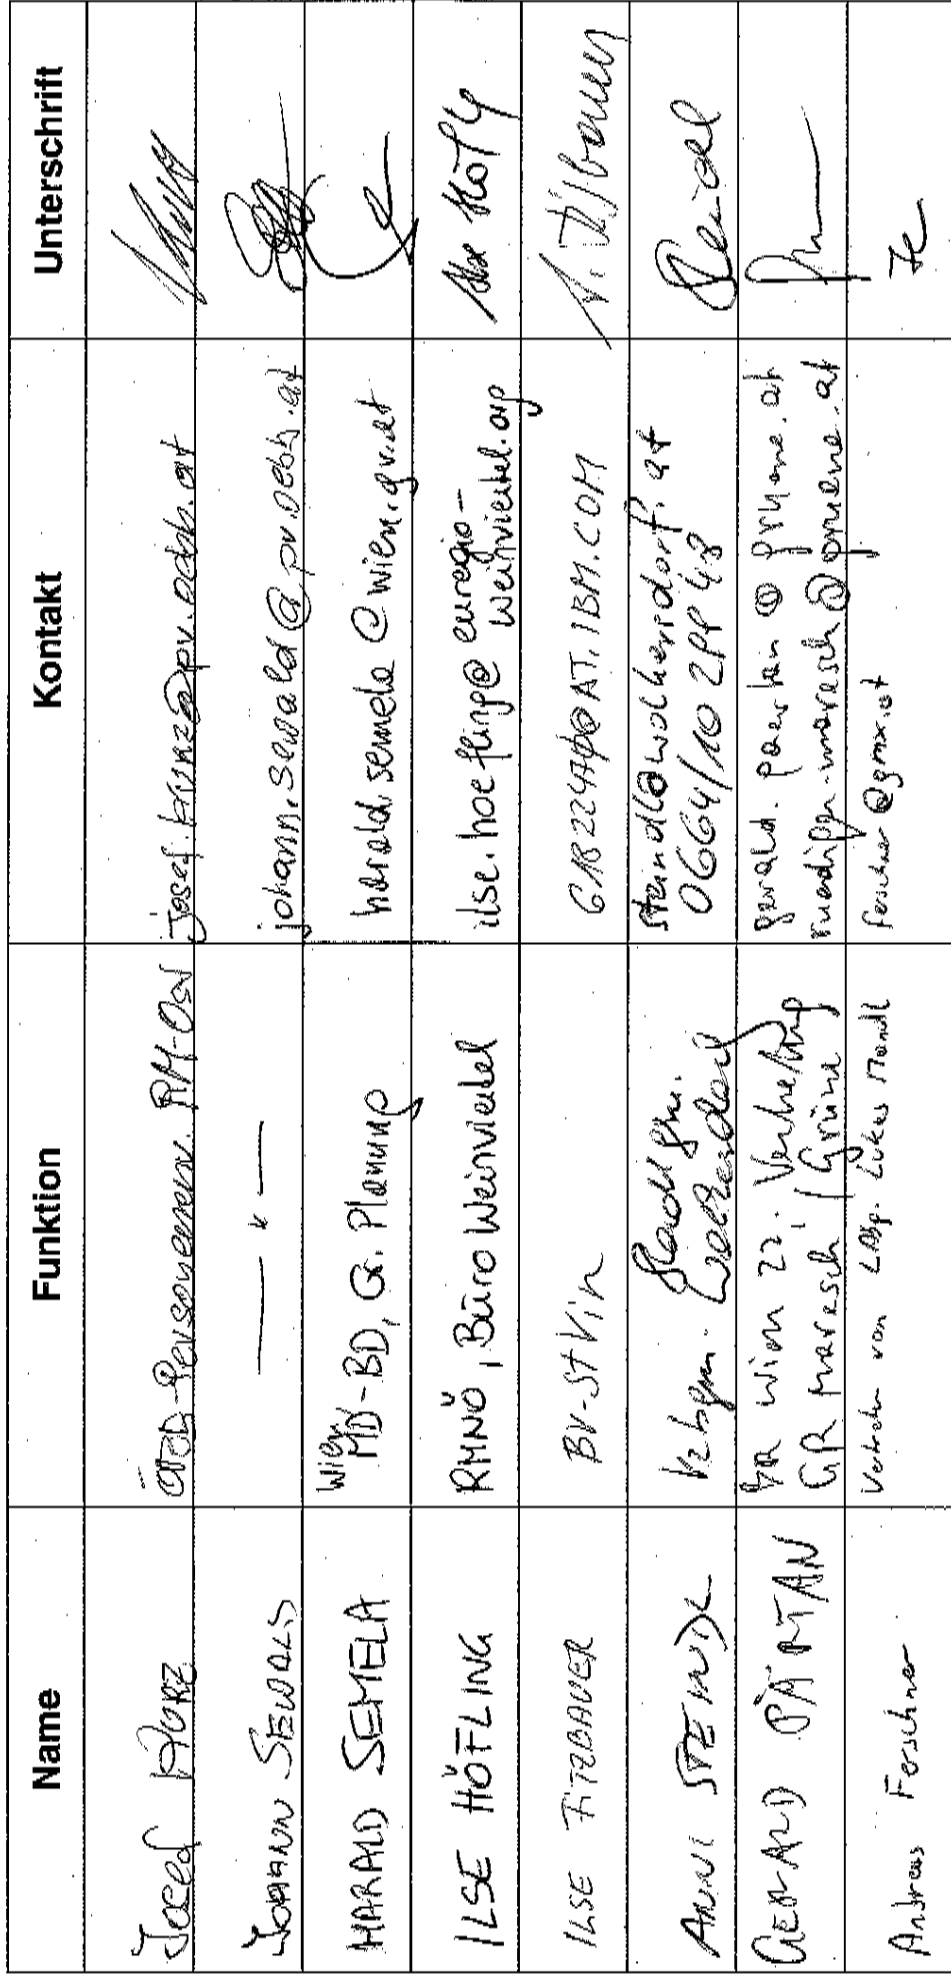 Name Funktion Kontakt Unterschrift
Josef Kurz ÖBB-Personenv. RM-Ost josef.kurz@pv.oebb.at
JOHANN SEWALD — " — johann.sewald@pv.oebb.at
HARALD SEMELA Wien
MD-BD, Gr. Planung harald.semela@wien.gv.at
ILSE HÖFLING RMNÖ, Büro Weinviertel ilse.hoefling@euregio-
weinviertel.org Ilse Höfli
ILSE FITZBAUER BV-STV in @AT.IBM.COM I. Fitzbauer
ANNI STEINDL Vzbgm. Stadtgem.
Wolkersdorf steindl@wolkersdorf.at
0664/10 299 48 Steindl
GERALD BR Wien 22.
GR Maresch / Grüne gerald. @gruene.at
ruediger.maresch@gruene.at
Andreas Ferschner Vertreter von LAbg. Lukas Mandl ferschner@gmx.at